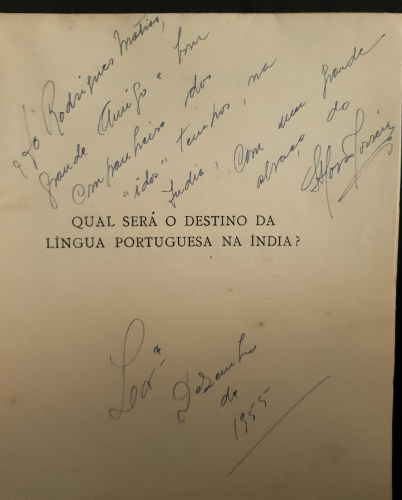 Ao Rodrigues Matias,
grande Amigo e bom
companheiro dos
"idos" tempos, na
Índia, com um grande
abraço do
QUAL SERÁ O DESTINO DA
LÍNGUA PORTUGUESA NA ÍNDIA?
Dezembro
de
1955